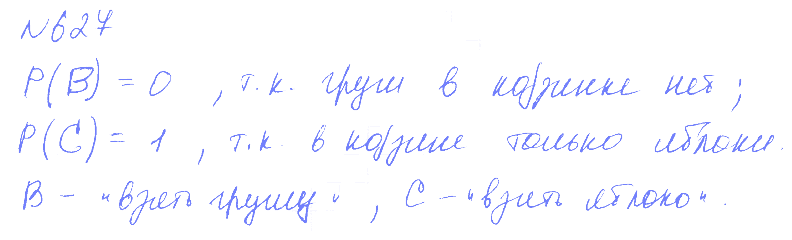 №627
P(B) = 0, т.к. груш в корзинке нет;
P(C) = 1, т.к. в корзине только яблоки.
B – "взять грушу", C – "взять яблоко".